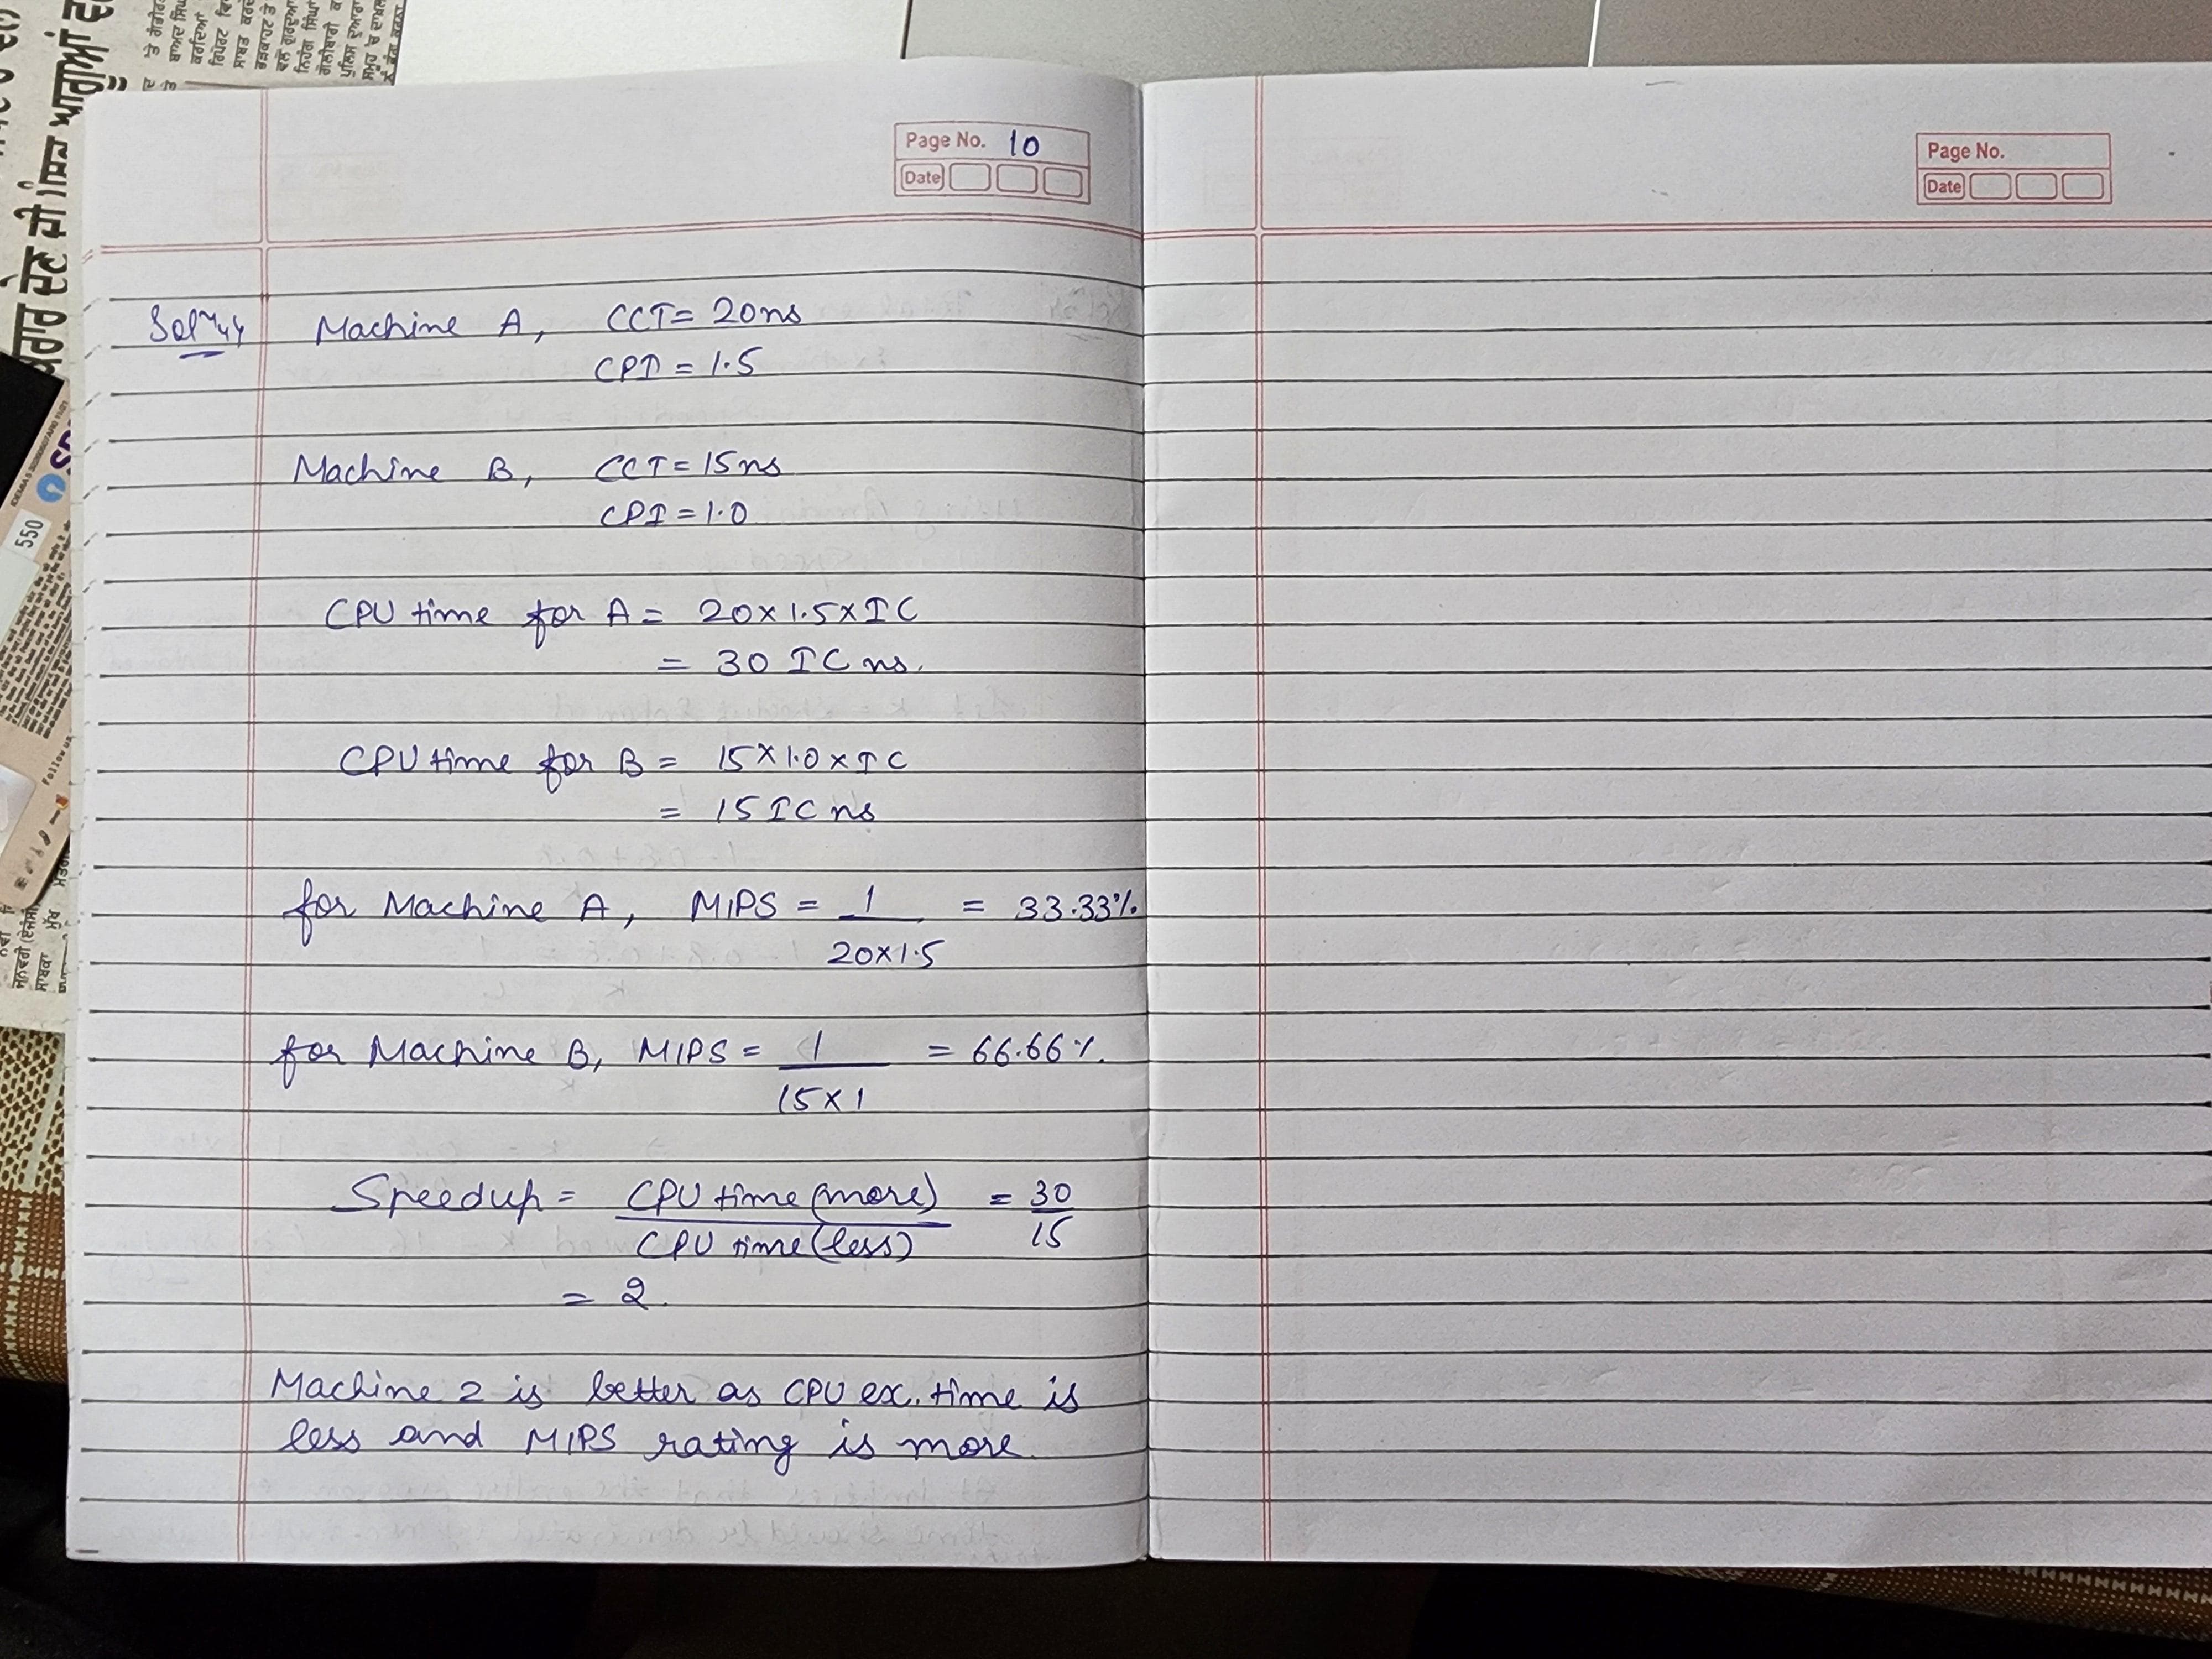 Page No. 10
Date
Page No.
Date
Machine A, CCT = 20ns
CPI = 1.5
Machine B, CCT = 15ns
CPI = 1.0
CPU time for A = 20 x 1.5 x IC
= 30 IC ns.
CPU time for B = 15 x 1.0 x IC
= 15 IC ns
for Machine A, MIPS = 1 / 20x1.5 = 33.33%
for Machine B, MIPS = 1 / 15 x 1 = 66.66%.
Speedup = CPU time (more) / CPU time (less) = 30 / 15
= 2.
Machine 2 is better as CPU ex. time is
less and MIPS rating is more.
550
Follow us